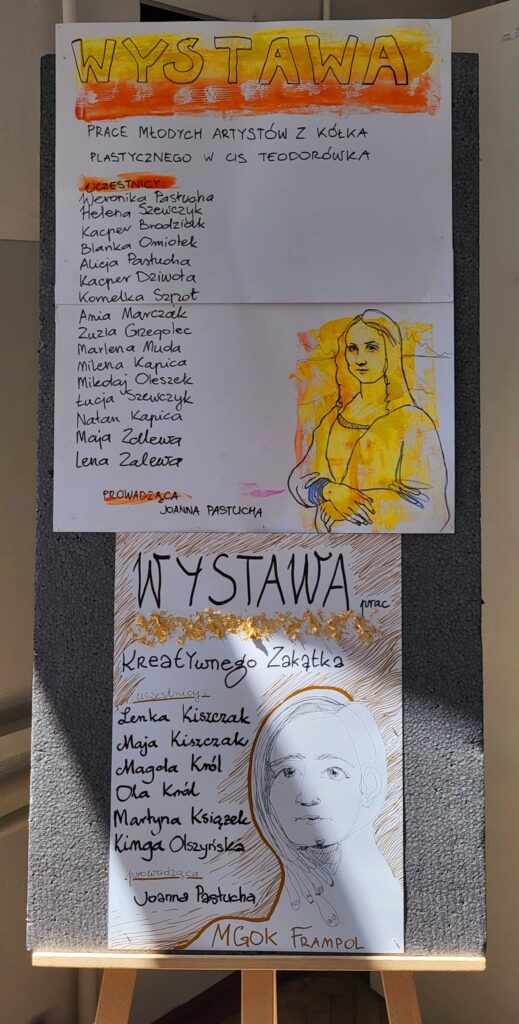 WYSTAWA
PRACE MŁODYCH ARTYSTÓW Z KÓŁKA
PLASTYCZNEGO W CIS TEODORÓWKA
UCZESTNICY:
Weronika Pastucha
Helena Szewczyk
Kacper Brodziak
Blanka Omiotek
Alicja Pastucha
Kacper Dziwota
Kornelka Szpot
Ania Marczak
Zuzia Grzegolec
Marlena Muda
Milena Kapica
Mikołaj Oleszek
Łucja Szewczyk
Natan Kapica
Maja Zalewa
Lena Zalewa
PROWADZĄCA
JOANNA PASTUCHA
WYSTAWA
prac
Kreatywnego Zakątka
uczestnicy:
Lenka Kiszczak
Maja Kiszczak
Magda Król
Ola Król
Martyna Książek
Kinga Olszyńska
prowadząca
Joanna Pastucha
MGOK FRAMPOL